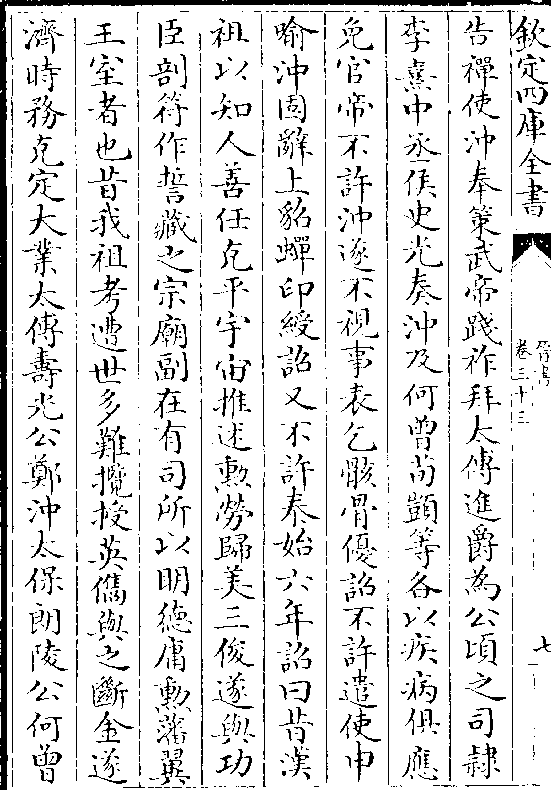 欽定四庫全書
晉書
卷三十三
七
告禪使沖奉策武帝踐祚拜太傅進爵為公頃之司隸
李熹中丞侯史光奏沖及何曾荀顗等各以疾病俱應
免官帝不許沖遂不視事表乞骸骨優詔不許遣使申
喻沖固辭上貂蟬印綬詔又不許泰始六年詔曰昔漢
祖以知人善任克平宇宙推述勲勞歸美三俊遂與功
臣剖符作誓藏之宗廟副在有司所以明徳庸勲藩翼
王室者也昔我祖考遭世多難攬授英儁與之斷金遂
濟時務克定大業太傅壽光公鄭沖太保朗陵公何曾